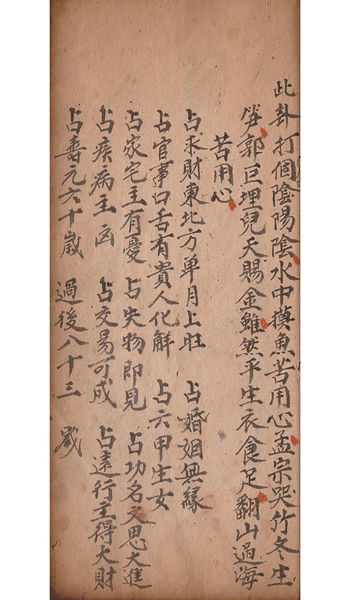 此卦打個陰陽陰水中摸魚苦用心孟宗哭竹冬生
笋郭巨埋児天賜金雖然平生衣食足翻山過海
苦用心
占求財東北方单月上旺 占婚姻無緣
占官事口舌有貴人化解 占六甲生女
占家宅主有憂 占失物即見 占功名文思大進
占疾病主凶 占交易可成 占遠行主得大財
占壽元六十歲 過後八十三歲